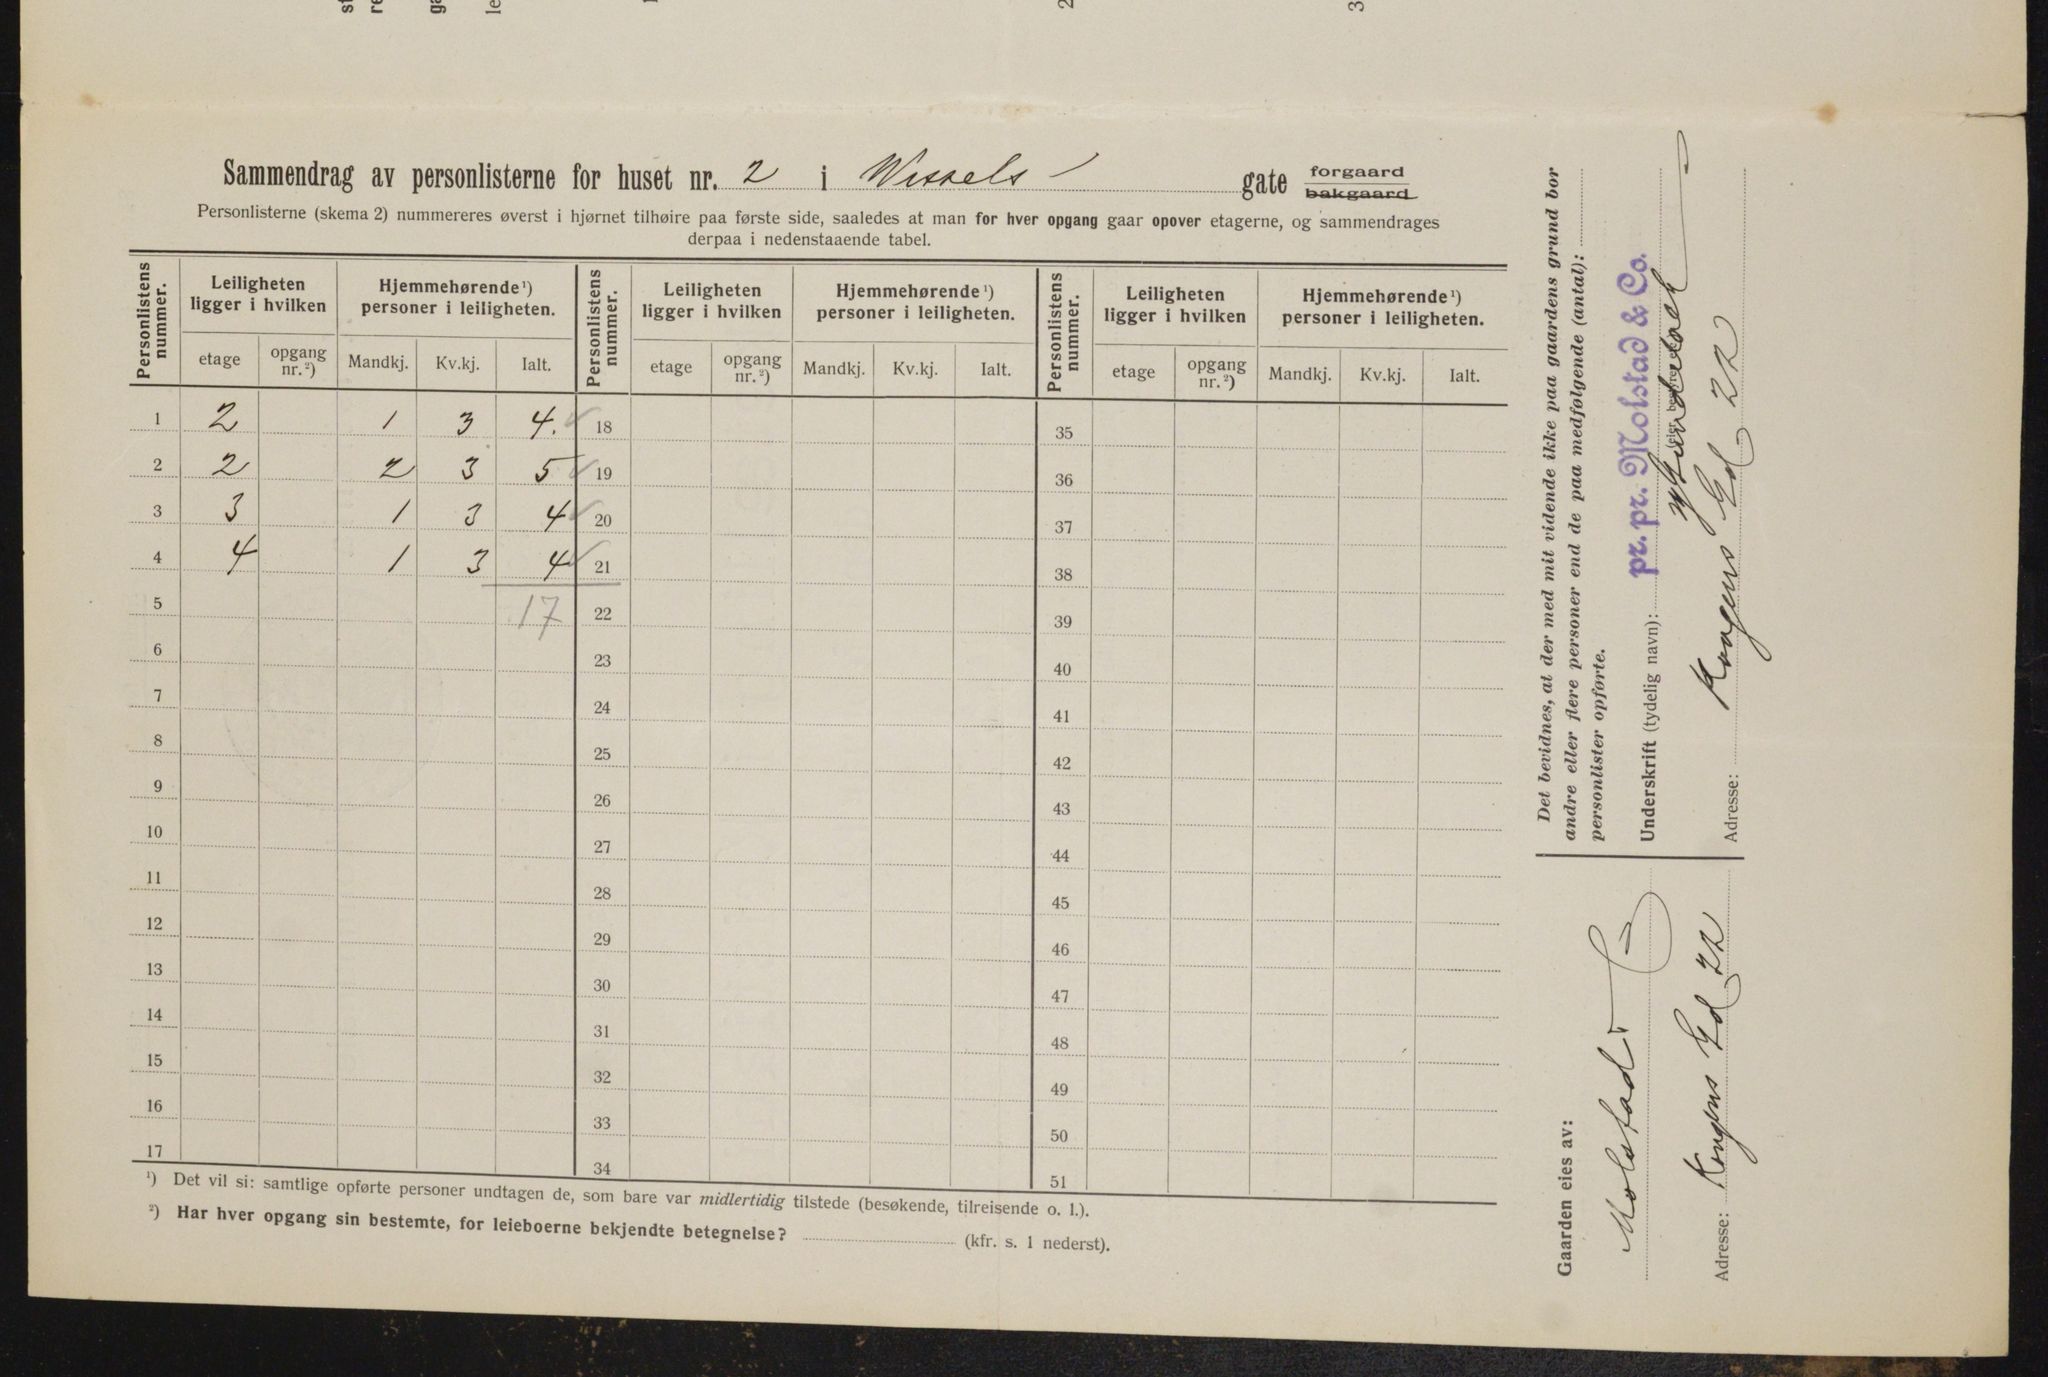 Sammendrag av personlisterne for huset nr. 2 i Wessels gate forgaard bakgaard
Personlisterne (skema 2) nummereres øverst i hjørnet tilhøire paa første side, saaledes at man for hver opgang gaar opover etagerne, og sammendrages
derpaa i nedenstaaende tabel.
Personlistens nummer. Leiligheten ligger i hvilken Hjemmehørende ¹) personer i leiligheten. Personlistens nummer. Leiligheten ligger i hvilken Hjemmehørende ¹) personer i leiligheten. Personlistens nummer. Leiligheten ligger i hvilken Hjemmehørende ¹) personer i leiligheten.
etage opgang nr. ²) Mandkj. Kv.kj. Ialt. etage opgang nr. ²) Mandkj. Kv.kj. Ialt. etage opgang nr. ²) Mandkj. Kv.kj. Ialt.
1 2 1 3 4. 18 35
2 2 2 3 5 19 36
3 3 1 3 4 20 37
4 4 1 3 4 21 38
5 17 22 39
6 23 40
7 24 41
8 25 42
9 26 43
10 27 44
11 28 45
12 29 46
13 30 47
14 31 48
15 32 49
16 33 50
17 34 51
¹) Det vil si: samtlige opførte personer undtagen de, som bare var midlertidig tilstede (besøkende, tilreisende o. l.).
²) Har hver opgang sin bestemte, for leieboerne bekjendte betegnelse? (kfr. s. 1 nederst).
Det bevidnes, at der med mit vidende ikke paa gaardens grund bor
andre eller flere personer end de paa medfølgende (antal):
personlister opførte.
pr. pr. Molstad & Co.
Underskrift (tydelig navn):
Adresse: Kongens Gd 22
Gaarden eies av:
Molstad
Adresse: Kongens Gd 22